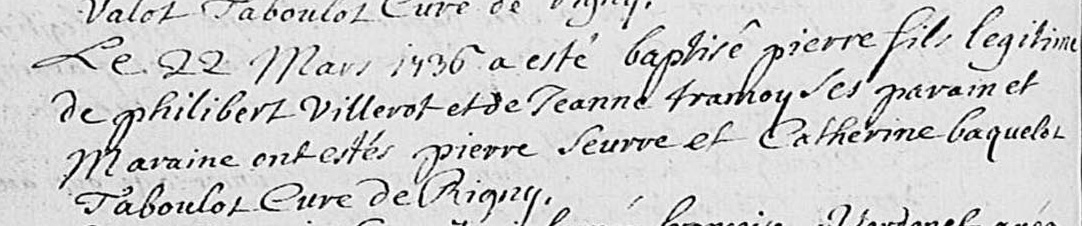 Valot Taboulot Cure de Rigny.
Le 22 Mars 1736 a esté baptisé pierre fils legitime
de philibert Villerot et de Jeanne tramoy Ses parain et
Maraine ont estés pierre Seurre et Catherine baquelot
Taboulot Cure de Rigny.